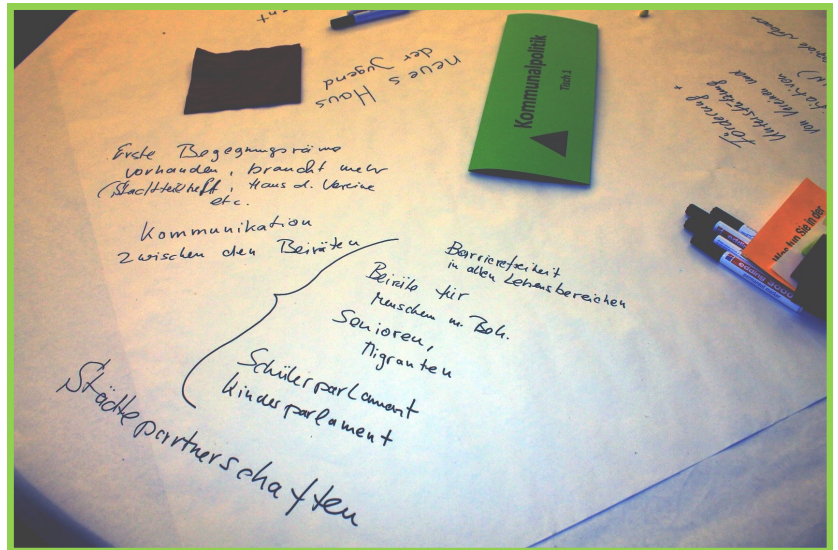 neues Haus
der Jugend
Kommunalpolitik
Tisch 1
Förderung +
Unterstützung
von Vereinen und
Erste Begegnungsräume
vorhanden, braucht mehr
(Stadtteiltreff, Haus d. Vereine
etc.
Kommunikation
zwischen den Beiräten
Barrierefreiheit
in allen Lebensbereichen
Beiräte für
Menschen m. Beh.
Senioren,
Migranten
Schülerparlament
Kinderparlament
Städtepartnerschaften
Sie in der
edding 3000